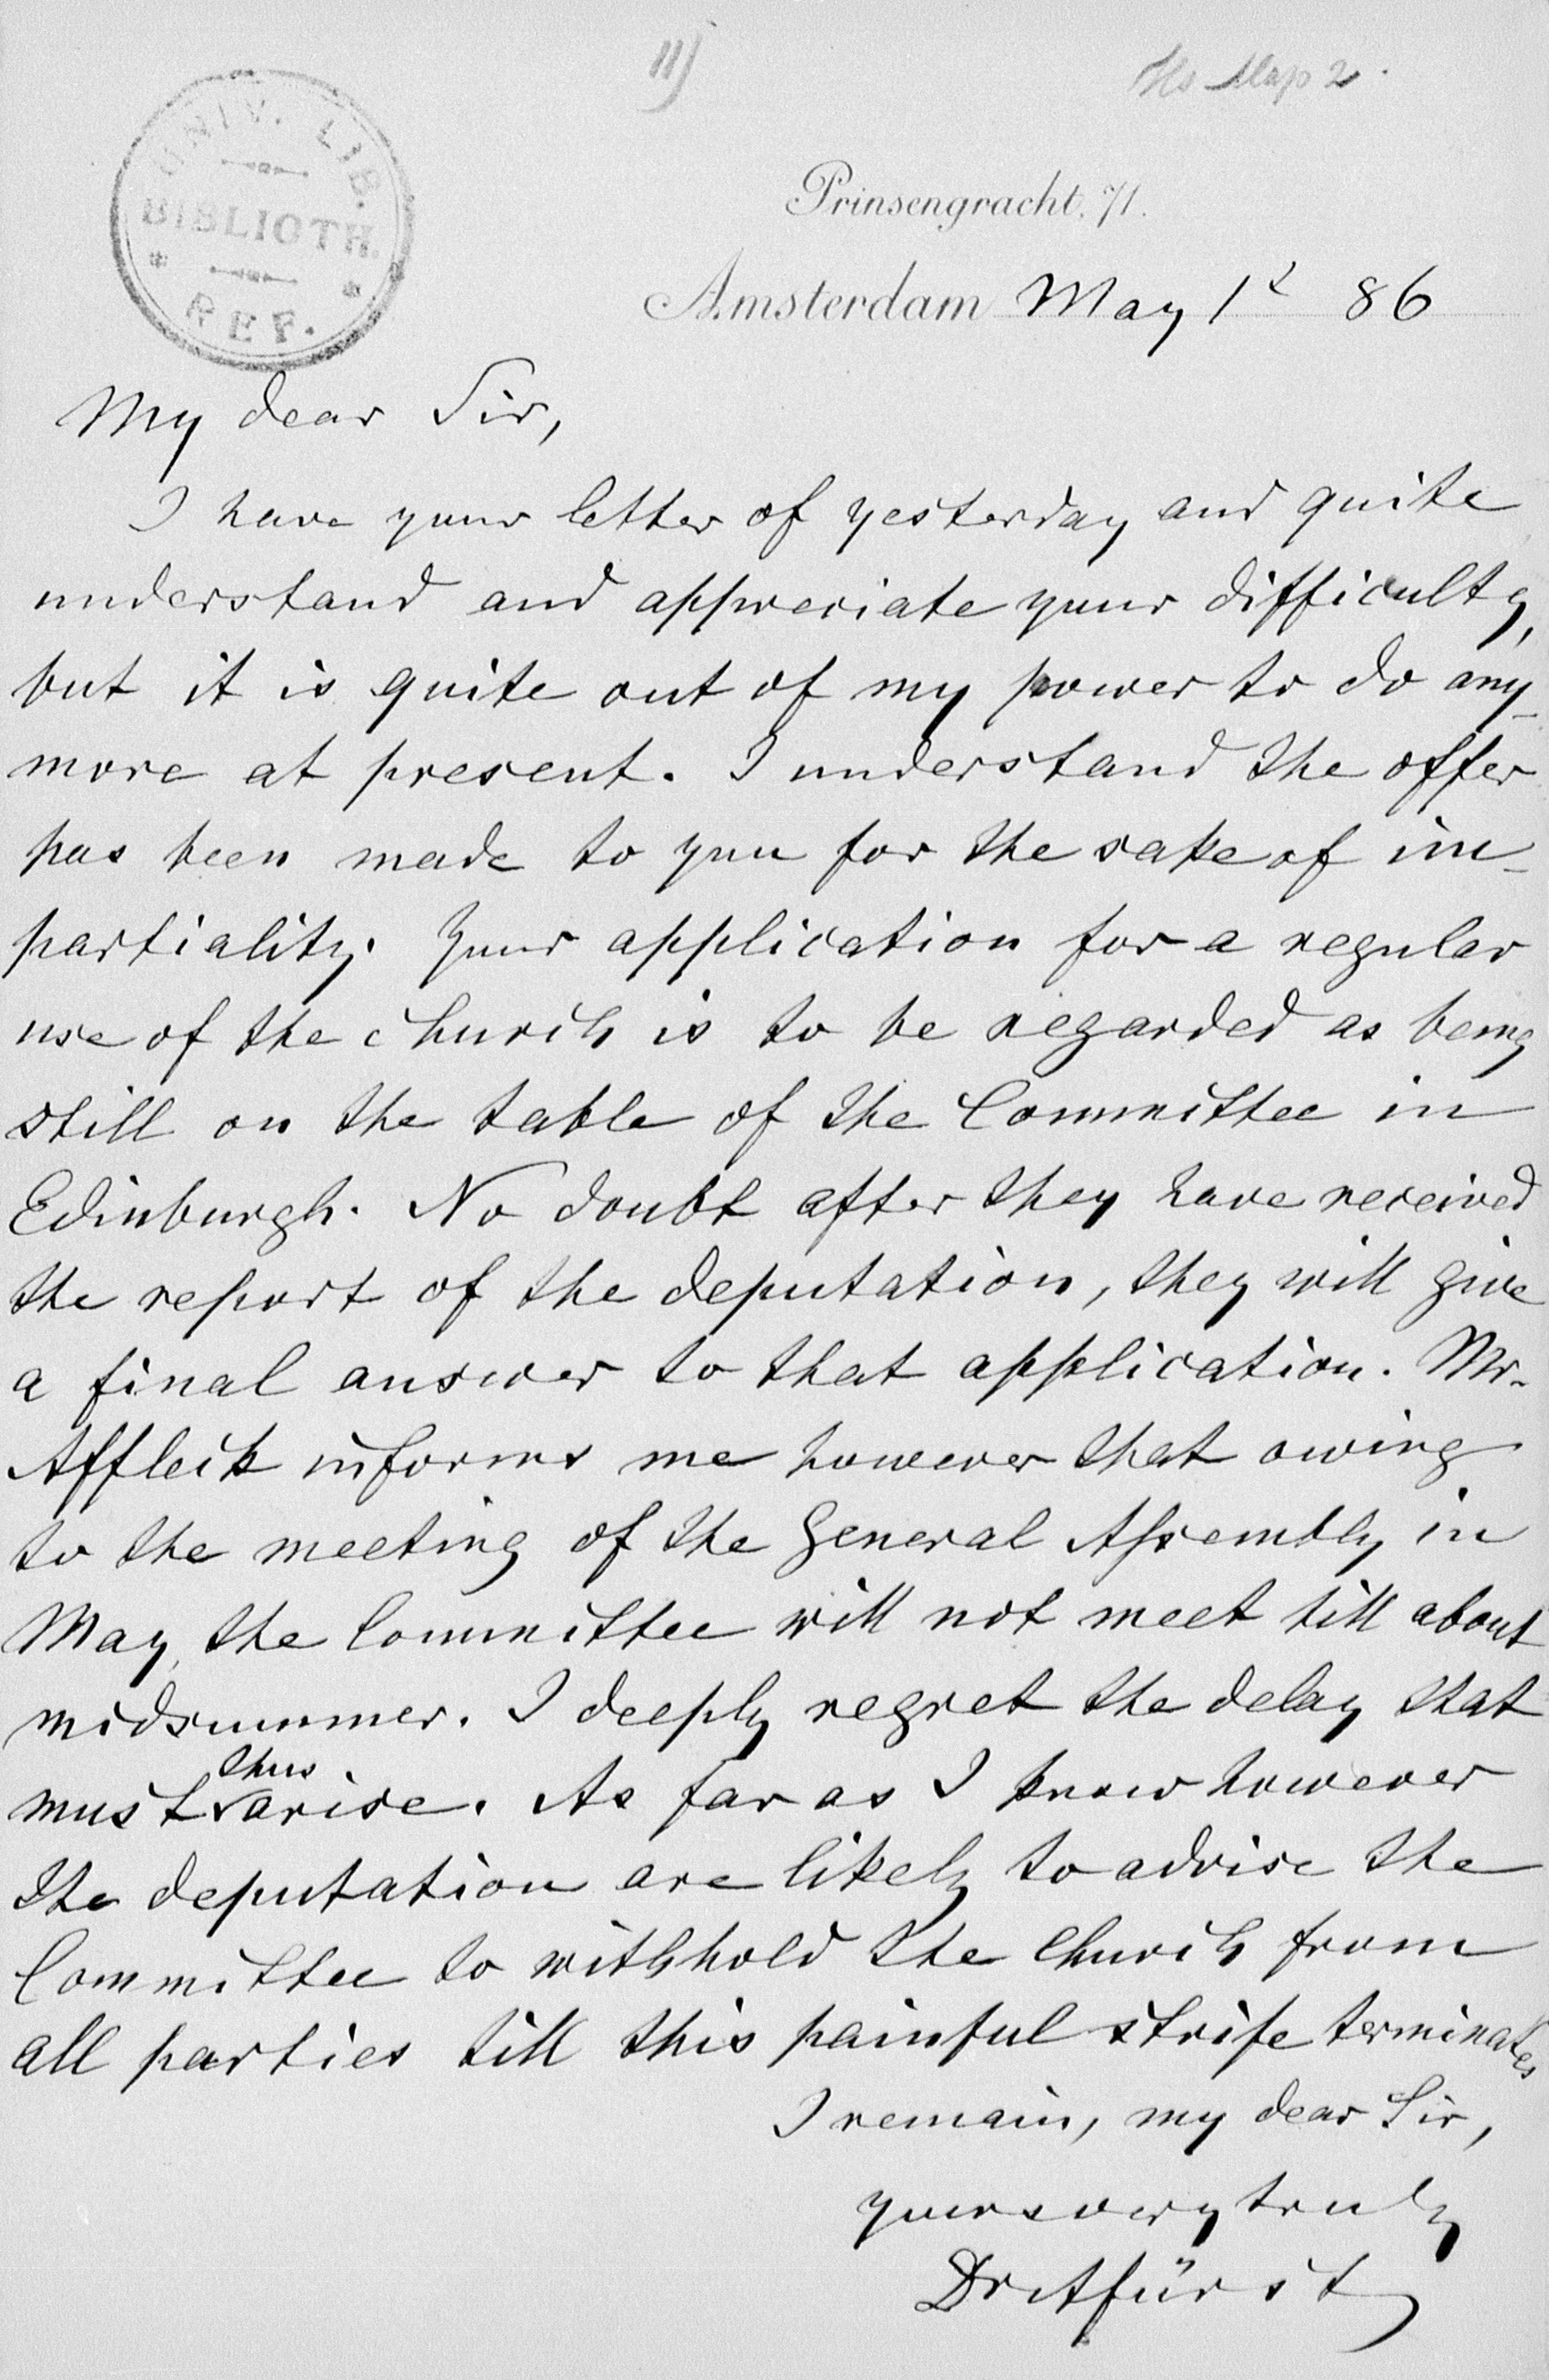 11)
Hs Map 2.
UNIV. LIB.
BIBLIOTH.
REF.
Prinsengracht, 71.
Amsterdam May 1st 86
My dear Sir,
I have your letter of yesterday and quite
understand and appreciate your difficulty,
but it is quite out of my power to do any-
more at present. I understand the offer
has been made to you for the sake of im-
partiality. Your application for a regular
use of the church is to be regarded as being
still on the table of the Committee in
Edinburgh. No doubt after they have received
the report of the deputation, they will give
a final answer to that application. Mr.
Affleck informs me however that owing
to the meeting of the General Assembly in
May, the Committee will not meet till about
midsummer. I deeply regret the delay that
must thus arise. As far as I know however
the deputation are likely to advise the
Committee to withhold the Church from
all parties till this painful strife terminates
I remain, my dear Sir,
yours very truly
Dr A Fürst